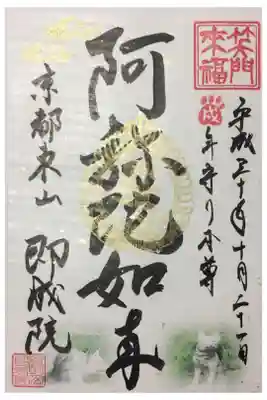 笑門
来福
平成三十年十月二十一日
戌
年守り本尊
阿弥陀如来
京都東山
即成院